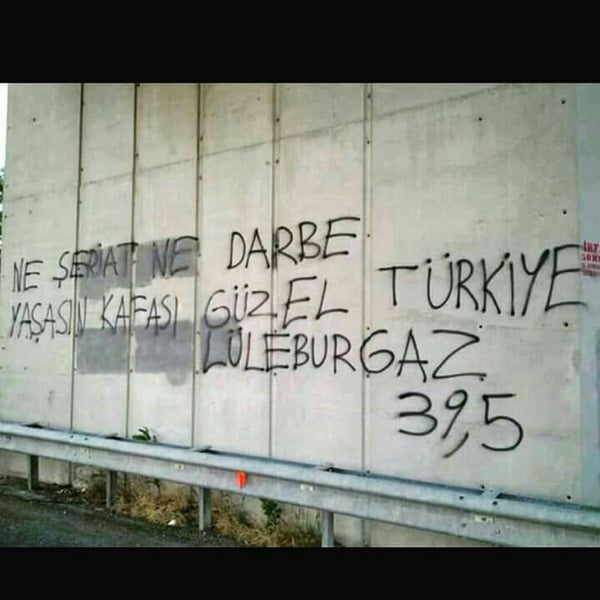 NE ŞERİAT NE DARBE
YAŞASIN KAFASI GÜZEL TÜRKİYE
LÜLEBURGAZ
39,5